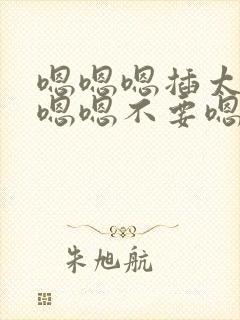 嗯嗯嗯插太
嗯嗯不要嗯
朱旭航